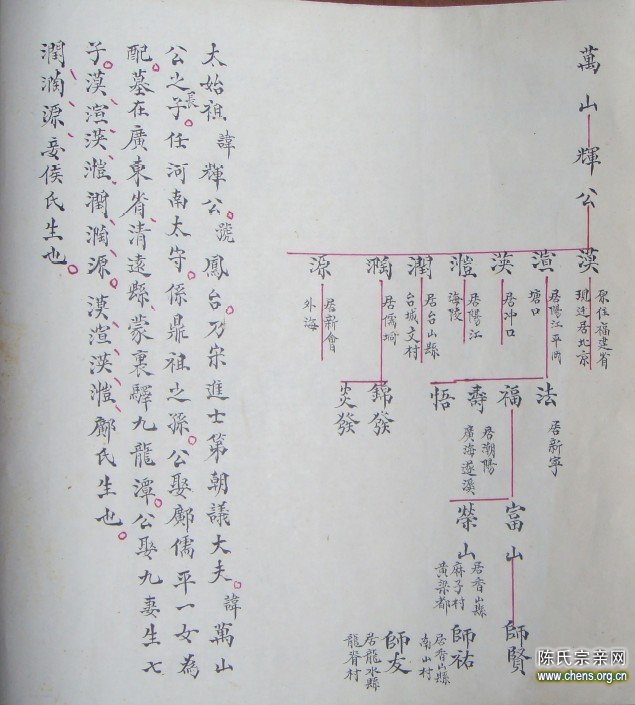 萬山
輝公
漠
原住福建省
現迁居北京
渲
居陽江平崗
塘口
渶
居冲口
溰
居陽江
海陵
潤
居台山縣
台城文村
源
居新會
外海
法
居新寧
福
壽
居潮陽
廣海遂溪
悟
錦發
炎發
富山
榮山
居香山縣
麻子村
黃梁都
師賢
師祐
居香山縣
南山村
師友
居龍水縣
龍脊村
太始祖諱輝公。號鳳台。乃宋進士第朝議大夫。諱萬山
公之長子。任河南太守。係鼎祖之孫。公娶鄺儒平一女為
配。墓在廣東省清遠縣、蒙裏驛九龍潭。公娶九妻生七
子。漠、渲、渶、溰、潤、源。漠、渲、渶、溰、鄺氏生也。
潤、源、妾侯氏生也。
陈氏宗亲网
www.chens.org.cn